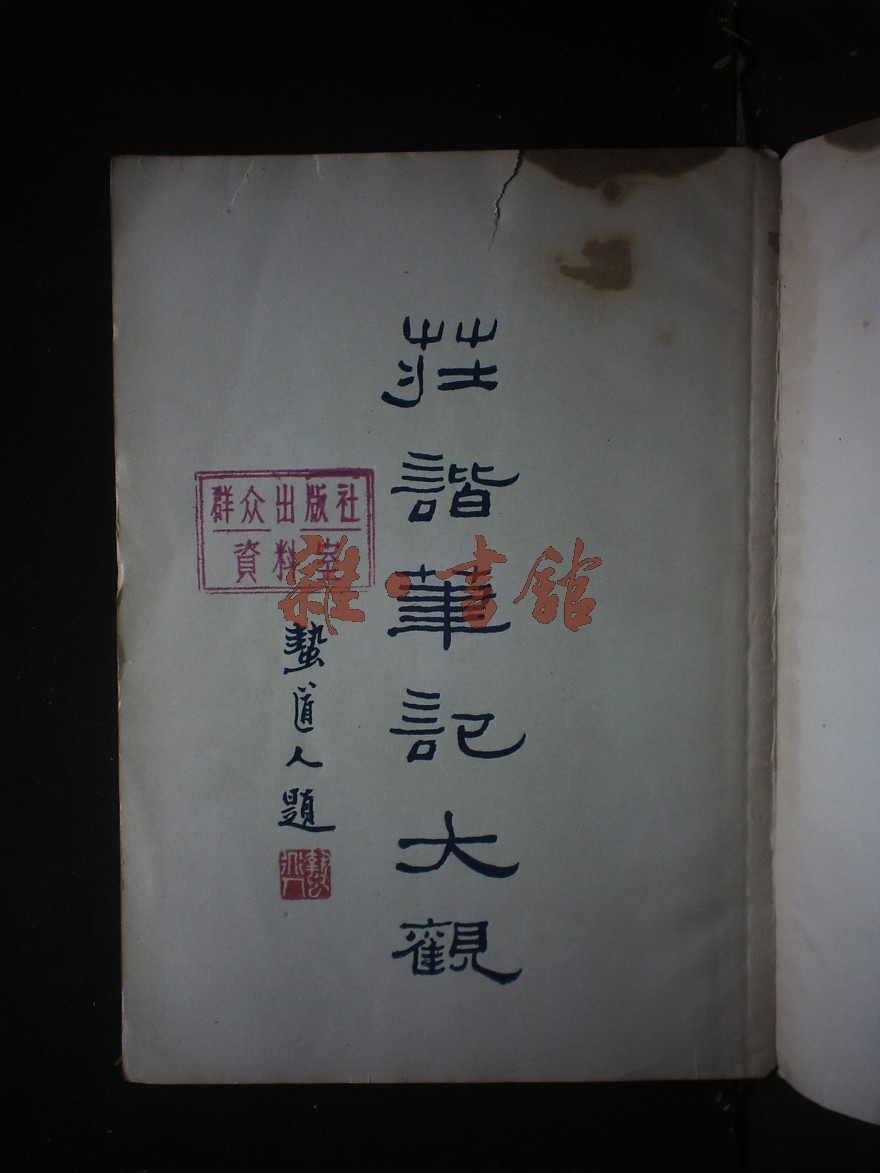 莊諧筆記大觀
群众出版社
資料室
蟄道人題
雜·書館